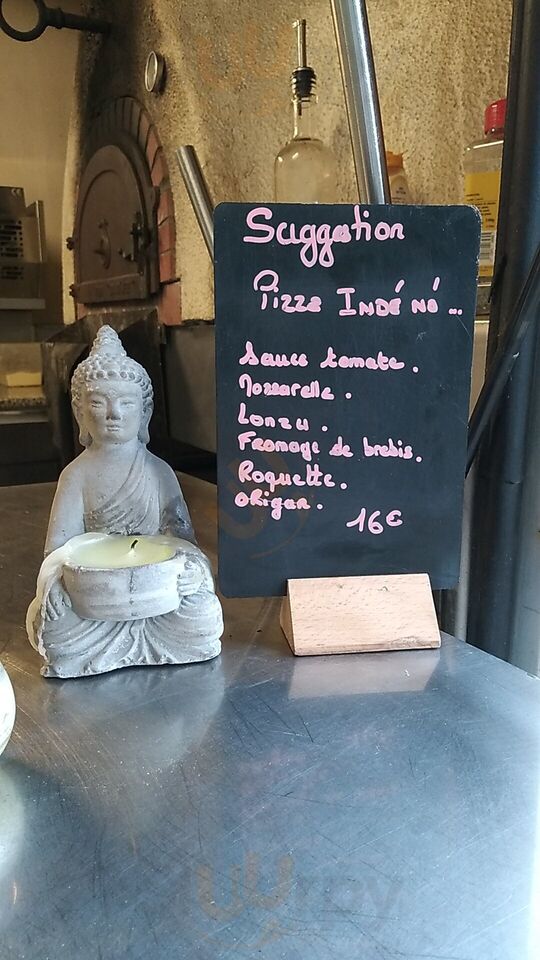 Suggestion
Pizza INDÉ NÓ...
Sauce tomate.
Mozzarella.
Lonzu.
Fromage de brebis.
Roquette.
ORigan.
16€